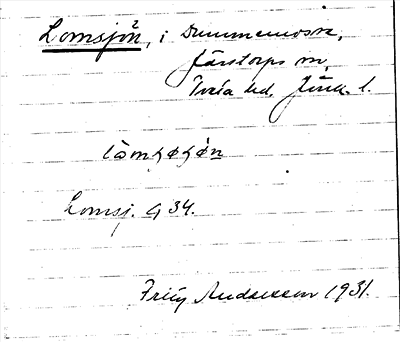 Lomsjön, i Dummemosse,
Järstorps sn,
Tveta hd, Jönk. l.
Lomsj. G 34.
Fritz Andersson 1931.